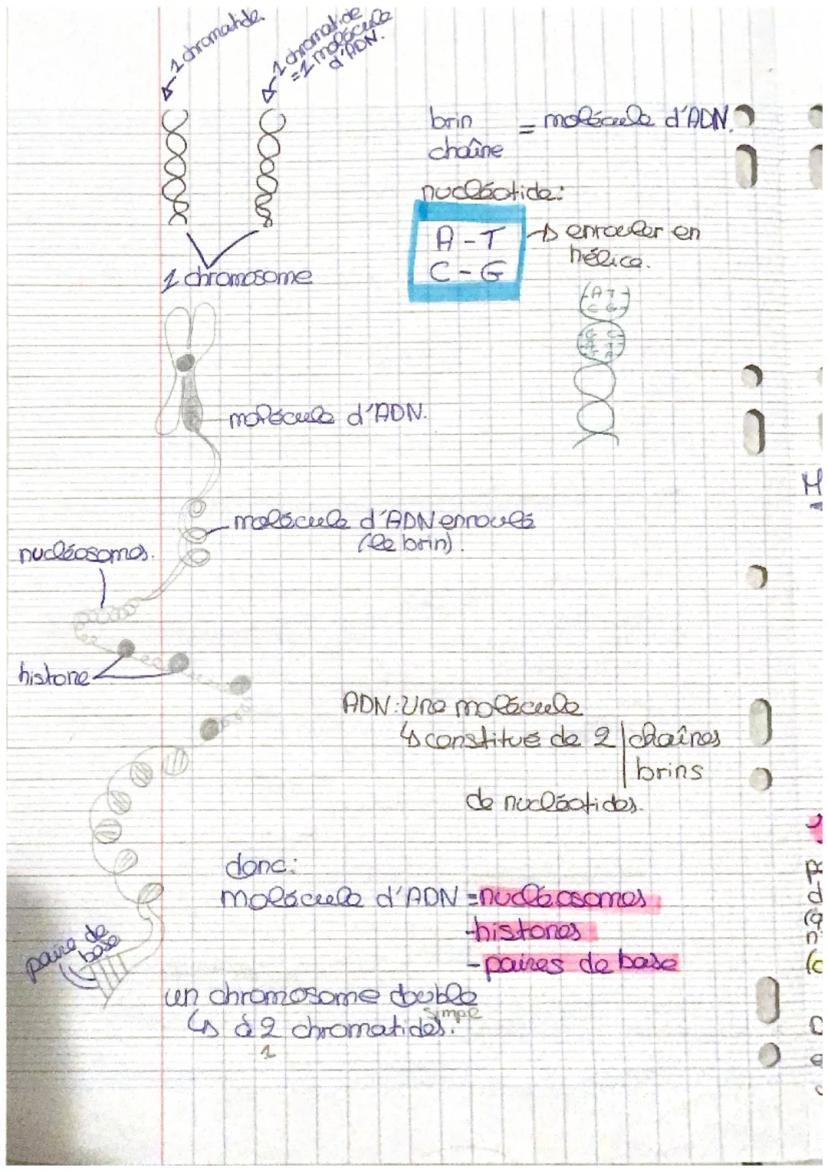 1 chromatide
1 chromatide
= 1 molécule
d'ADN.
brin = molécule d'ADN.
chaîne
nucléotide:
A - T → enrouler en
C - G hélice.
1 chromosome
A T
C G
molécule d'ADN.
molécule d'ADN enroulé
(le brin).
nucléosomes.
histone
ADN: Une molécule
↳ constitué de 2 | chaînes
brins
de nucléotides.
donc:
molécule d'ADN = nucléosomes
- histones
- paires de base
paire de
base
un chromosome double
simple
↳ à 2 chromatides.
1